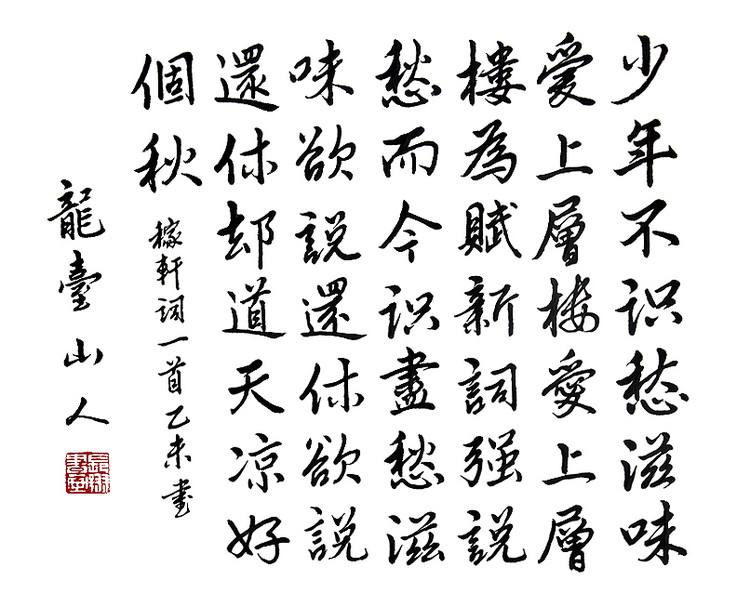 少年不识愁滋味
愛上層楼愛上層
樓為賦新詞强説
愁而今识盡愁滋
味欲説還休欲説
還休却道天凉好
個秋
稼軒詞一首乙未書
龍臺山人